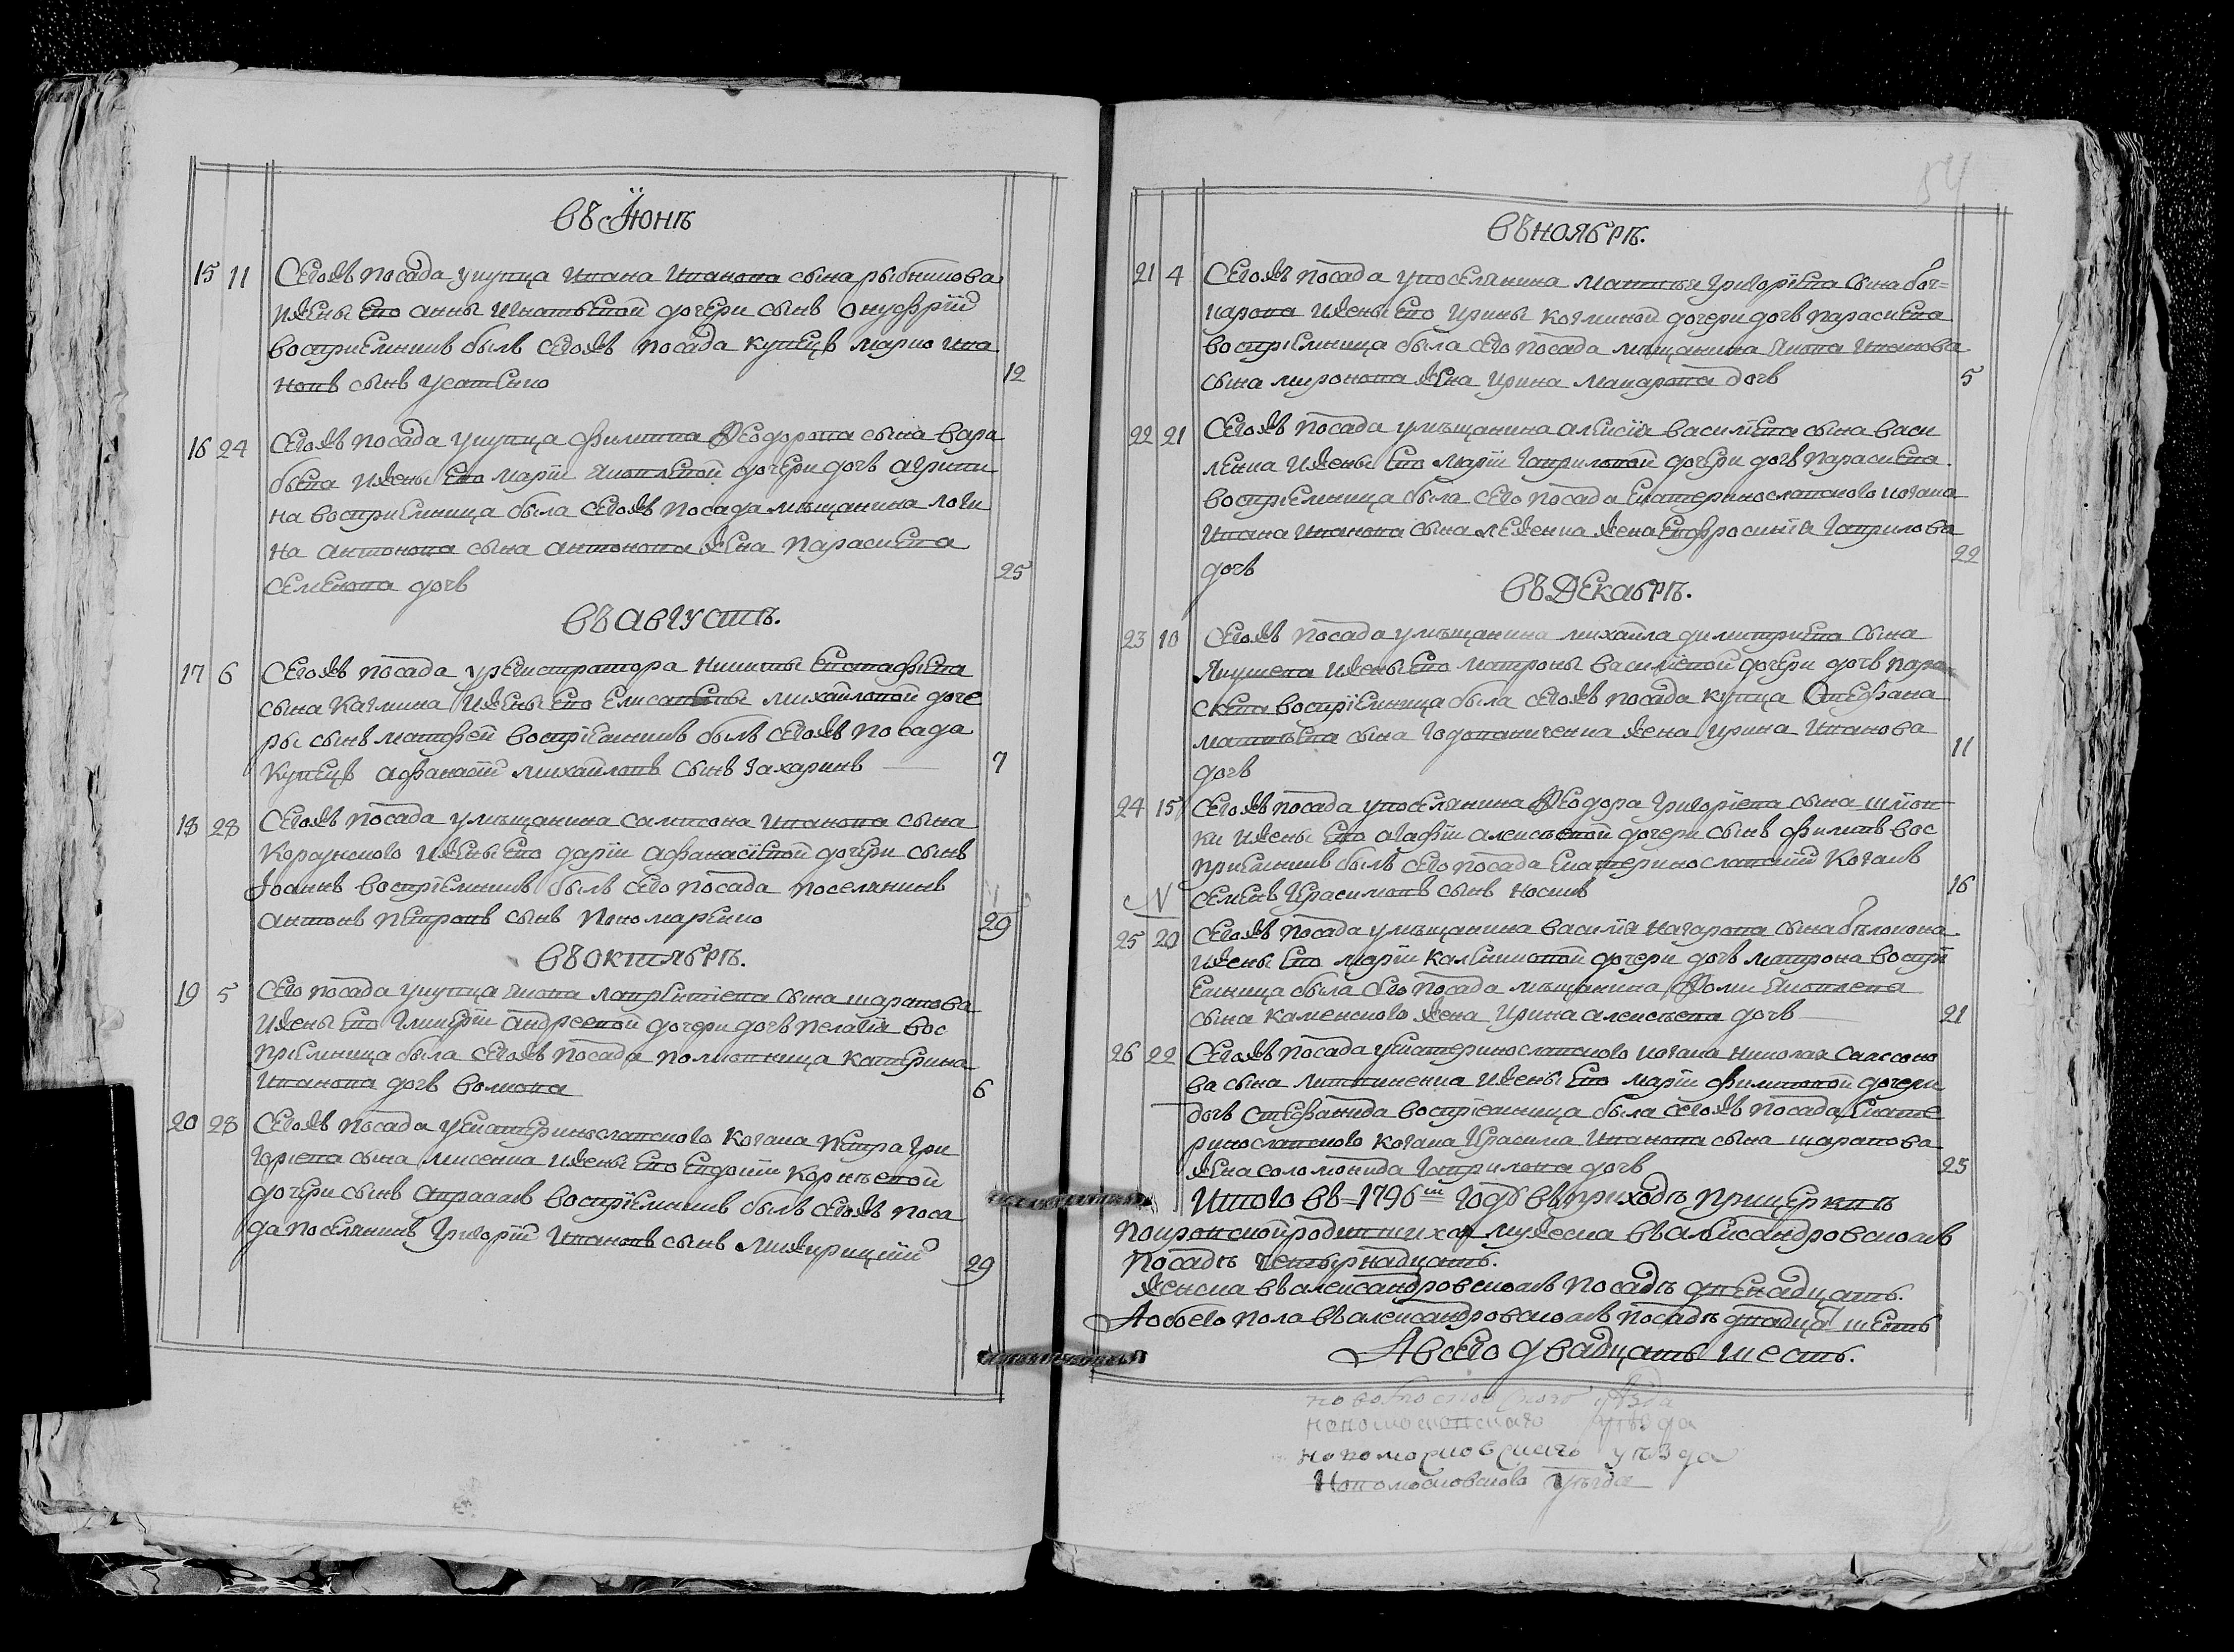 въ Іюнѣ
15 11 Сегожъ посада укупца Ивана Иванова сына рыбникова
ижены его анны Игнатьевой дочери сынъ Онуфрій
воспріемникъ былъ сегожъ посада купецъ марко Ива
новъ сынъ Усатенко 12
16 24 Сегожъ посада укупца филиппа Ѳеодорова сына вара
бьева ижены его маріи яковлевой дочери дочь агрипи
на воспріемница была сегожъ посада мѣщанина логи
на антонова сына антонова жена параскева
семенова дочь 25
въ августѣ.
17 6 Сегожъ посада урегистратора никиты евстафиева
сына Качмина ижены его елисаветы михайловой доче
ри сынъ матфей воспріемникъ былъ сегожъ посада
купецъ афанасій михайловъ сынъ захаринъ 7
18 28 Сегожъ посада умѣщанина сампсона иванова сына
Корсунского ижены его дарїи афанасїевой дочери сынъ
Іоаннъ воспріемникъ былъ сего посада поселянинъ
антонъ петровъ сынъ пономаренко 29
въ октябрѣ.
19 5 Сего посада укупца якова лаврентїева сына шарапова
ижены его гликерїи андреевой дочери дочь пелагїя вос
пріемница была сегожъ посада полковница катерина
иванова дочь волкова 6
20 28 Сегожъ посада уекатеринославского козака петра гри
горїева сына лисенка ижены его евдокїи корнѣевой
дочери сынъ авраамъ воспріемникъ былъ сегожъ поса
да поселянинъ григорїй ивановъ сынъ мижирицкїй 29
54
въ ноябрѣ.
21 4 Сегожъ посада упоселянина матвея григорїева сына боч=
карова ижены его ирины козминой дочери дочь параскева
воспріемница была сего посада мѣщанина якова иванова
сына миронова жена ирина макарова дочь 5
22 21 Сегожъ посада умѣщанина алексїя василїева сына васи
ленка ижены его марїи гавриловой дочери дочь параскева
воспріемница была сего посада екатеринославского козака
ивана иванова сына леженка жена евфросинїя гаврилова
дочь 22
въ Декабрѣ.
23 10 Сегожъ посада умѣщанина михаила димитриева сына
якушева ижены его матроны василїевой дочери дочь пара
скева воспріемница была сегожъ посада купца стефана
матвѣева сына годованиченка жена ирина иванова
дочь 11
24 15 Сегожъ посада упоселянина Ѳеодора григорїева сына шпон
ки ижены его агафїи алексѣевой дочери сынъ филипъ вос
пріемникъ былъ сего посада екатеринославскїй козакъ
семенъ герасимовъ сынъ носикъ 16
25 20 Сегожъ посада умѣщанина василїя назарова сына бѣлокона
ижены его марїи калениковой дочери дочь матрона воспрї
емница была сего посада мѣщанина Ѳомы яковлева
сына каменского жена ирина алексѣева дочь 21
26 22 Сегожъ посада уекатеринославского козака николая
ва сына литвиненка ижены его марїи филиповой дочери
дочь стефанида воспріемница была сегожъ посада екате
ринославского козака герасима иванова сына шарапова
жена соломонида гаврилова дочь 23
Итого въ 1796м годѣ въ приходѣ при церквѣ
покровской родившихся мужеска въ александровскомъ
посадѣ четырнадцать.
женска въ александровскомъ посадѣ двенадцать.
А обоего пола въ александровскомъ посадѣ двадцать шесть
А всего двадцать шесть.
уѣзда
новомосковскаго уѣзда
новомосковскаго уѣзда
Новомосковского уѣзда